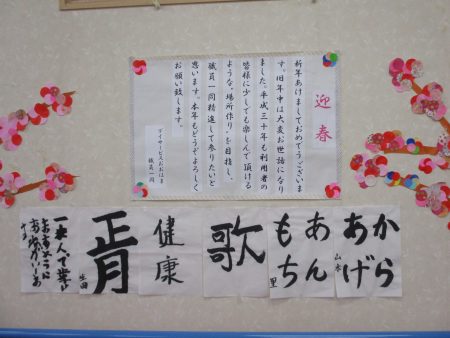 迎春
新年あけましておめでとうございま
す。旧年中は大変お世話になり
ました。平成三十年も利用者の
皆様に少しでも楽しんで頂ける
ような、場所作り、を目指し、
職員一同精進して参りたいと
思います。本年もどうぞよろしく
お願い致します。
デイサービスおおはま
職員一同
から
あげ
山本
あん
もち
里
歌
健康
正月